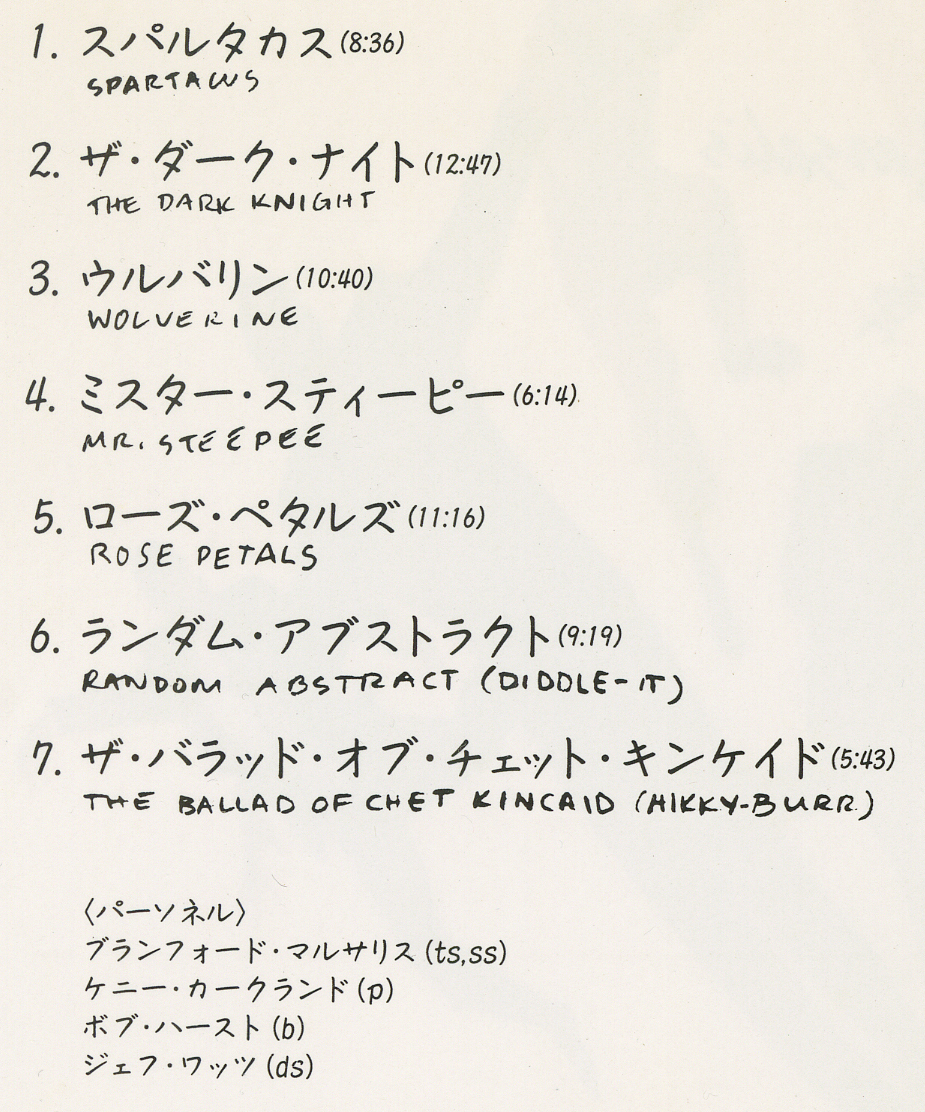 1. スパルタカス (8:36)
SPARTACUS
2. ザ・ダーク・ナイト (12:47)
THE DARK KNIGHT
3. ウルバリン (10:40)
WOLVERINE
4. ミスター・スティーピー (6:14)
MR. STEEPEE
5. ローズ・ペタルズ (11:16)
ROSE PETALS
6. ランダム・アブストラクト (9:19)
RANDOM ABSTRACT (DIDDLE-IT)
7. ザ・バラッド・オブ・チェット・キンケイド (5:43)
THE BALLAD OF CHET KINCAID (HIKKY-BURR)
〈パーソネル〉
ブランフォード・マルサリス (ts,ss)
ケニー・カークランド (p)
ボブ・ハースト (b)
ジェフ・ワッツ (ds)